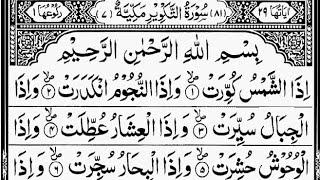 اٰيَاتُهَا ٢٩ (٨١) سُوْرَةُ التَّكْوِيْرِ مَكِّيَّةٌ (٧) رُكُوْعُهَا ١
بِسْمِ اللّٰهِ الرَّحْمٰنِ الرَّحِيْمِ
اِذَا الشَّمْسُ كُوِّرَتْ ۝١ وَاِذَا النُّجُوْمُ انْكَدَرَتْ ۝٢ وَاِذَا
الْجِبَالُ سُيِّرَتْ ۝٣ وَاِذَا الْعِشَارُ عُطِّلَتْ ۝٤ وَاِذَا
الْوُحُوْشُ حُشِرَتْ ۝٥ وَاِذَا الْبِحَارُ سُجِّرَتْ ۝٦ وَاِذَا